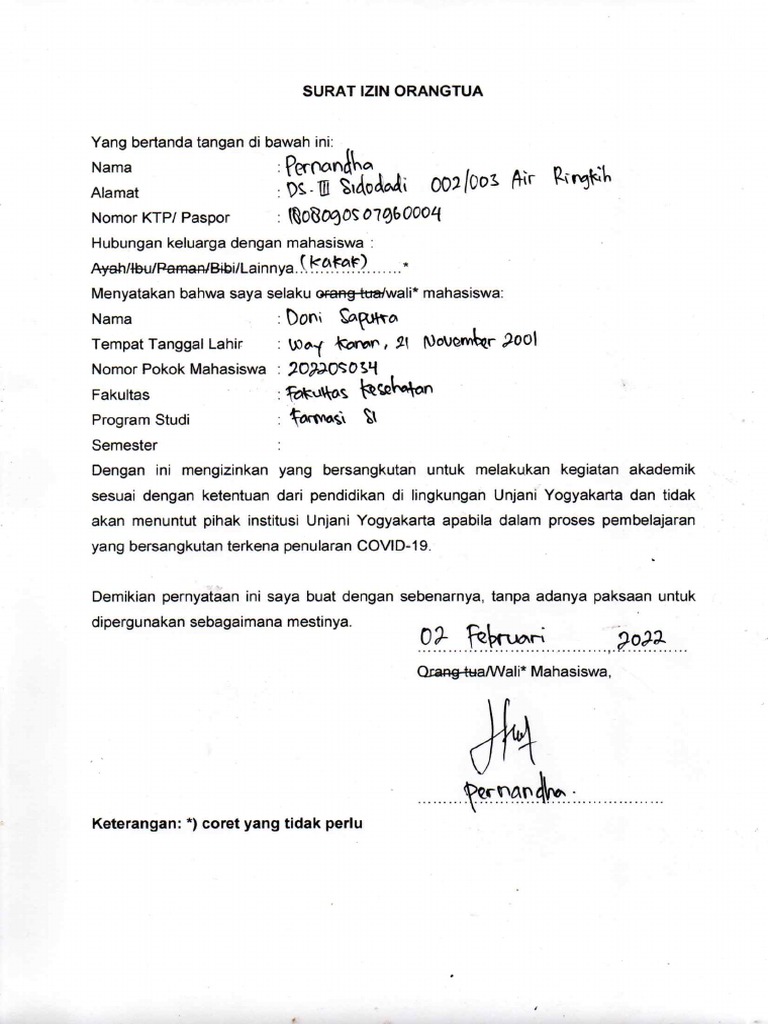 SURAT IZIN ORANGTUA
Yang bertanda tangan di bawah ini:
Nama : Pernandha
Alamat : DS. III Sidodadi 002/003 Air Ringkih
Nomor KTP/ Paspor : 1808090507960004
Hubungan keluarga dengan mahasiswa :
Ayah/Ibu/Paman/Bibi/Lainnya (Kakak) *
Menyatakan bahwa saya selaku orang tua/wali* mahasiswa:
Nama : Doni Saputra
Tempat Tanggal Lahir : Way Kanan, 21 November 2001
Nomor Pokok Mahasiswa : 202205034
Fakultas : Fakultas Kesehatan
Program Studi : Farmasi S1
Semester :
Dengan ini mengizinkan yang bersangkutan untuk melakukan kegiatan akademik
sesuai dengan ketentuan dari pendidikan di lingkungan Unjani Yogyakarta dan tidak
akan menuntut pihak institusi Unjani Yogyakarta apabila dalam proses pembelajaran
yang bersangkutan terkena penularan COVID-19.
Demikian pernyataan ini saya buat dengan sebenarnya, tanpa adanya paksaan untuk
dipergunakan sebagaimana mestinya.
02 Februari , 2022
Orang tua/Wali* Mahasiswa,
Pernandha.
Keterangan: *) coret yang tidak perlu